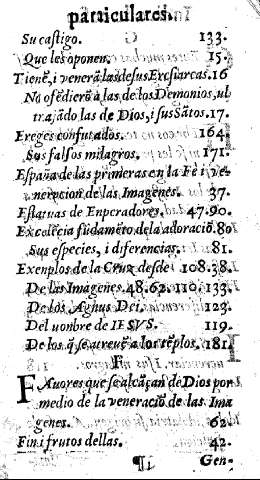 particulares.
Su castigo. 133.
Que les oponen. 15.
Tienẽ, i venerã las de sus Eresiarcas. 16
No ofẽdierõ à las de los Demonios, ul
trajãdo las de Dios, i sus Sãtos. 17.
Ereges confutados. 164.
Sus falsos milagros. 171.
España de las primeras en la Fè i ve-
neracion de las Imagenes. 37.
Estatuas de Enperadores. 47. 90.
Excelẽcia fũdamẽto de la adoraciõ. 80
Sus especies, i diferencias. 81.
Exenplos de la Cruz desde 108. 38.
De las Imagenes. 48. 62. 110. 133.
De los Agnus Dei. 123.
Del nonbre de IESVS. 119.
De los q̃ se atreuẽ a los tẽplos. 181.
F
FAuores que se alcãçan de Dios por
medio de la veneraciõ de las Ima
genes. 62.
Fin i frutos dellas. 42.
¶ Gen-